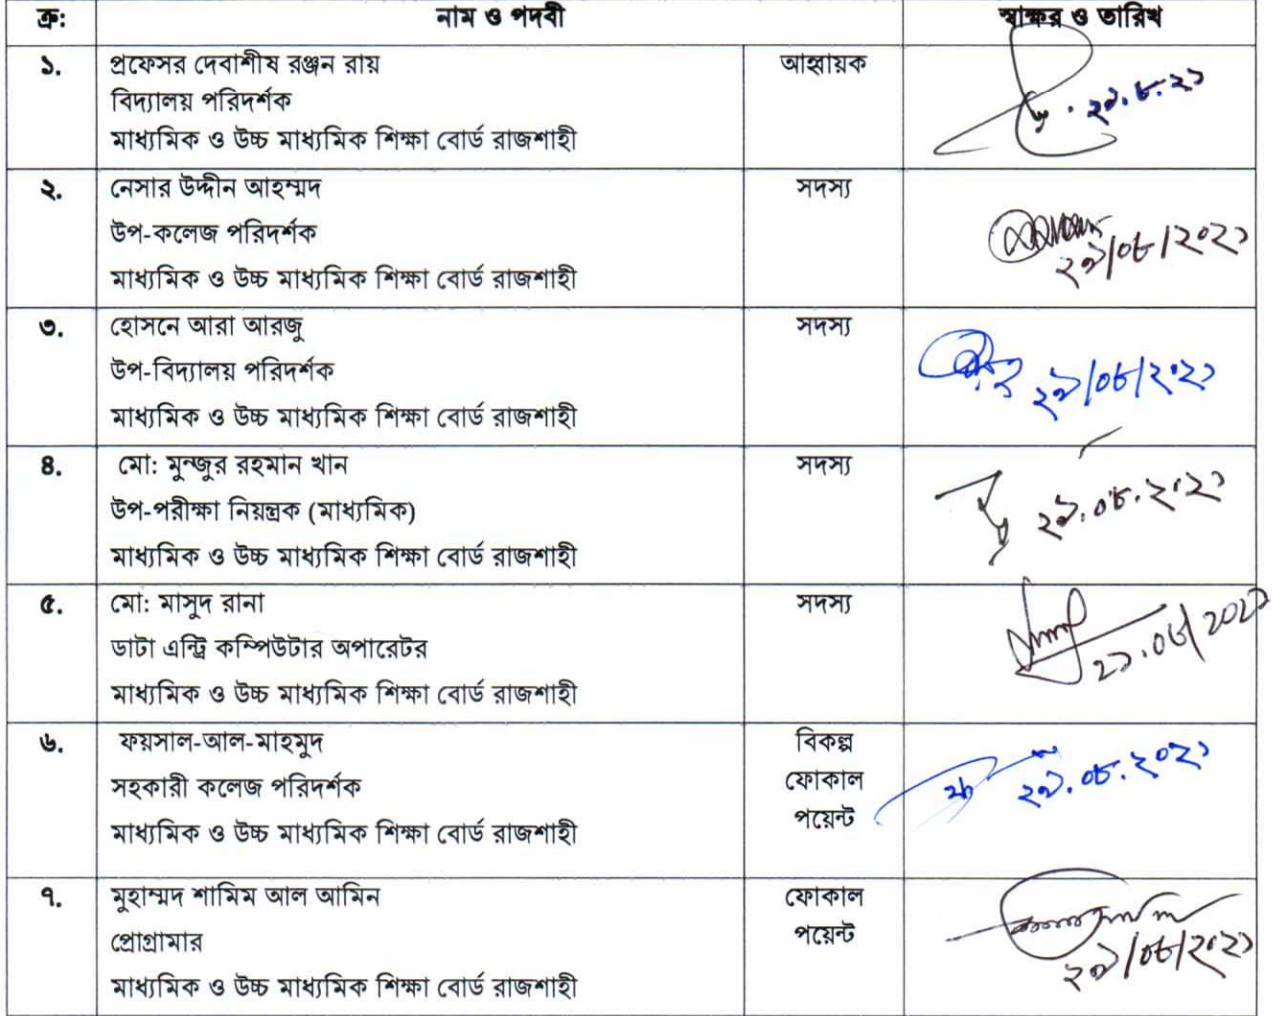 ক্র: নাম ও পদবী স্বাক্ষর ও তারিখ
১. প্রফেসর দেবাশীষ রঞ্জন রায় আহ্বায়ক
বিদ্যালয় পরিদর্শক
মাধ্যমিক ও উচ্চ মাধ্যমিক শিক্ষা বোর্ড রাজশাহী
২৯.৮.২১
২. নেসার উদ্দীন আহম্মদ সদস্য
উপ-কলেজ পরিদর্শক
মাধ্যমিক ও উচ্চ মাধ্যমিক শিক্ষা বোর্ড রাজশাহী
২৯/০৮/২০২১
৩. হোসনে আরা আরজু সদস্য
উপ-বিদ্যালয় পরিদর্শক
মাধ্যমিক ও উচ্চ মাধ্যমিক শিক্ষা বোর্ড রাজশাহী
২৯/০৮/২০২১
৪. মো: মুন্জুর রহমান খান সদস্য
উপ-পরীক্ষা নিয়ন্ত্রক (মাধ্যমিক)
মাধ্যমিক ও উচ্চ মাধ্যমিক শিক্ষা বোর্ড রাজশাহী
২৯.০৮.২০২১
৫. মো: মাসুদ রানা সদস্য
ডাটা এন্ট্রি কম্পিউটার অপারেটর
মাধ্যমিক ও উচ্চ মাধ্যমিক শিক্ষা বোর্ড রাজশাহী
৬. ফয়সাল-আল-মাহমুদ বিকল্প
ফোকাল
পয়েন্ট
সহকারী কলেজ পরিদর্শক
মাধ্যমিক ও উচ্চ মাধ্যমিক শিক্ষা বোর্ড রাজশাহী
২৯.০৮.২০২১
৭. মুহাম্মদ শামিম আল আমিন ফোকাল
পয়েন্ট
প্রোগ্রামার
মাধ্যমিক ও উচ্চ মাধ্যমিক শিক্ষা বোর্ড রাজশাহী
২৯/০৮/২০২১